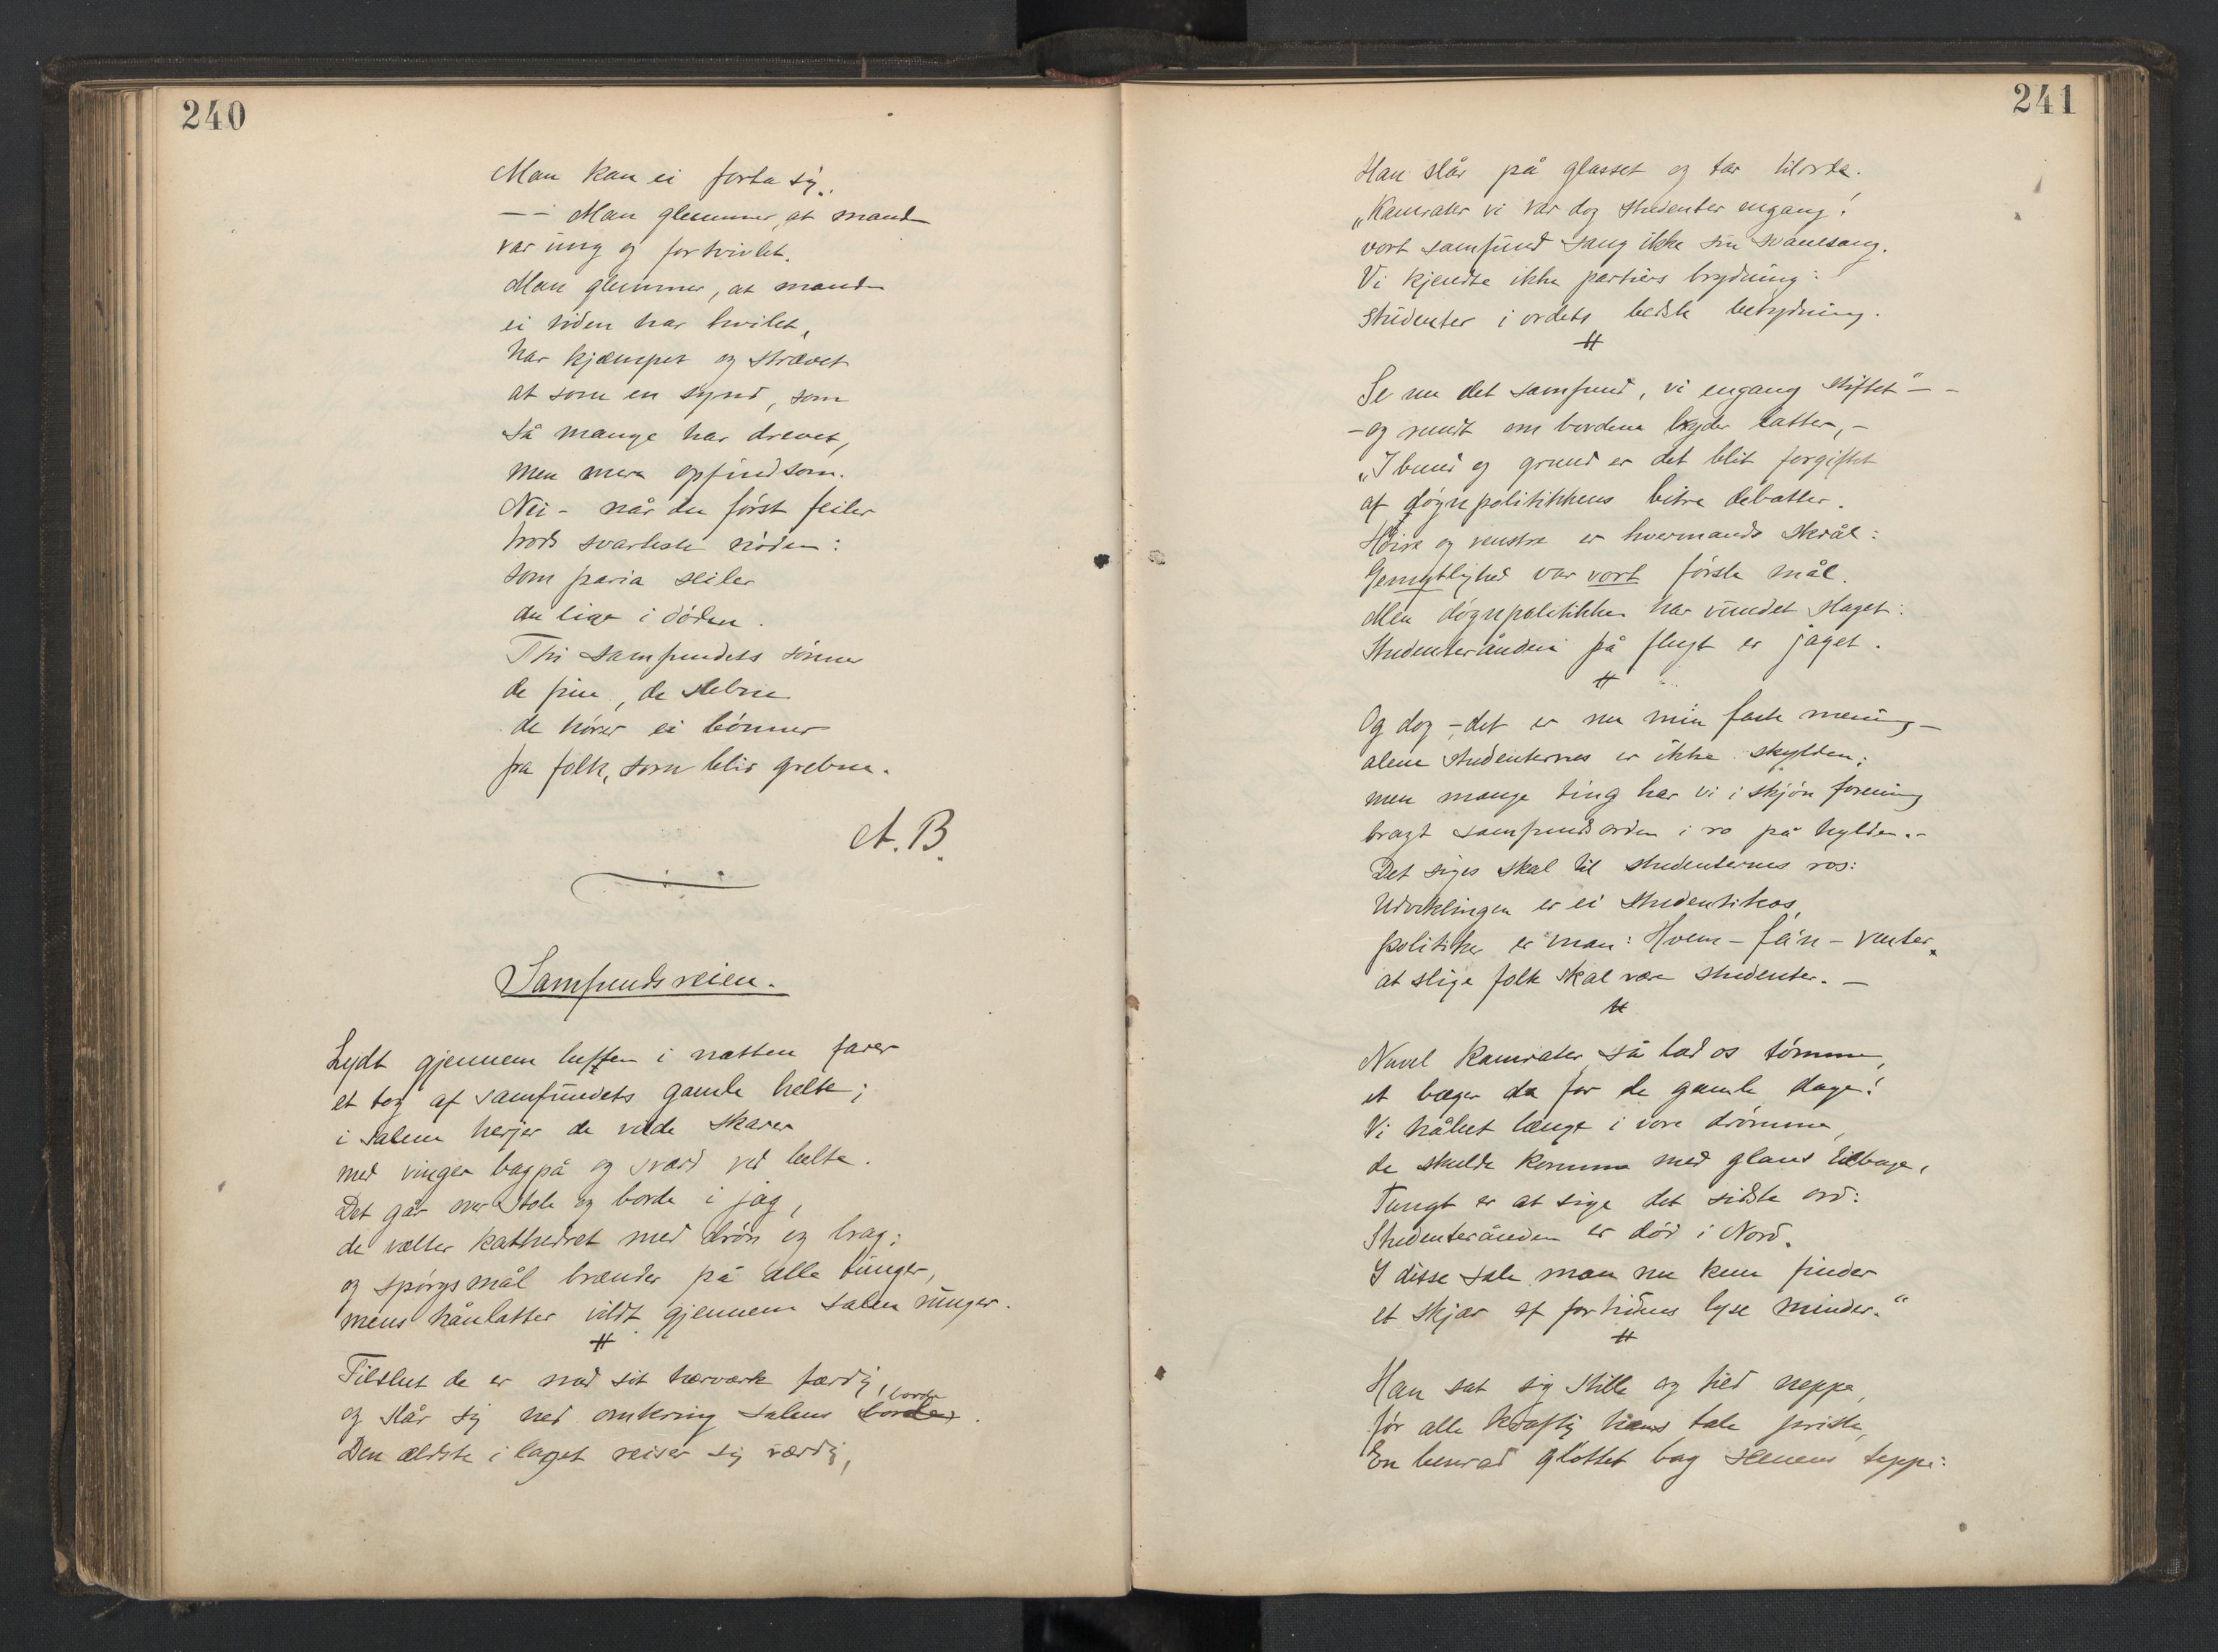 240
Man kan ei forta sig.
— – Man glemmer, at manden
var ung og fortvivlet.
Man glemmer, at manden
ei siden har hvilet,
har kjæmpet og strævet
at sone en synd, som
så mange har drevet,
men mere opfindsom.
Nei – når du först feiler
trods svarteste nöden:
som paria seiler
du lige i döden.
Thi samfundets sönner
de fine, de slebne
de hörer ei bönner
fra folk, som blir grebne.
A. B.
Samfundsreien.
Lydt gjennem luften i natten farer
et tog af samfundets gamle helte;
i salene herjer de vilde skarer
med vinger bagpå og sværd ved belte.
Det går over stole og borde i jag,
de vælter kathedret med drön og brag;
og spörgsmål brænder på alle tunger,
mens hånlatter vildt gjennem salen runger.
#
Tilslut de er med sit hærværk færdig,
borde
og slår sig ned omkring salens borde.
Den ældste i laget reiser sig værdig,
241
Han slår på glasset og tar tilorde.
„Kamrater vi var dog studenter engang!
vort samfund sang ikke sin svanesang.
Vi kjendte ikke partiers brydning:
studenter i ordets bedste betydning.
#
Se nu det samfund, vi engang stiftet" – –
– og rundt om bordene lyder latter, –
„I bund og grund er det blit forgiftet
af dögnpolitikkens bitre debatter.
Höire og venstre er hvermands skrål:
Gemytlighed var vort förste mål.
Men dögnpolitikken har vundet slaget:
Studenterånden på flugt er jaget.
#
Og dog – det er nu min faste mening –
alene studenternes er ikke skylden;
men mange ting har vi i skjön forening
bragt samfundsorden i ro på hylden. –
Det siges skal til studenternes ros:
Udviklingen er ei studentikos,
politiker er man: Hvem – fa'n – venter
at slige folk skal være studenter. –
#
Nuvel kamrater, så lad os tömme,
et bæger da for de gamle dage!
Vi håbet længe i vore drömme,
de skulde komme med glans tilbage,
Tungt er at sige det sidste ord:
Studenterånden er död i Nord.
I disse sale man nu kun finder
et skjær af fortidens lyse minder."
#
Han sat sig stille og tied neppe,
för alle kraftig hans tale priste,
En benrad glottet bag scenens teppe: